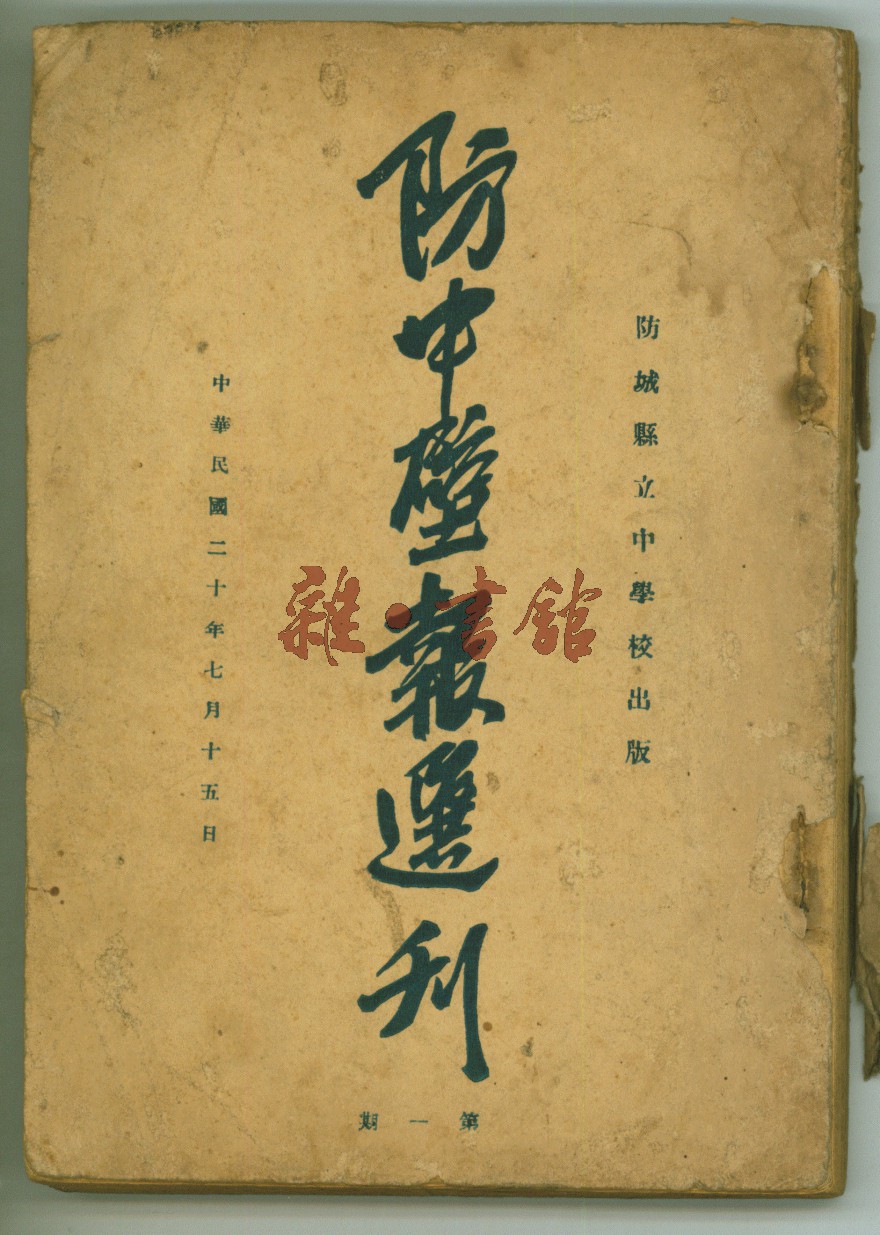 防城縣立中學校出版
防中壁報選刊
中華民國二十年七月十五日
第一期
雜·書館